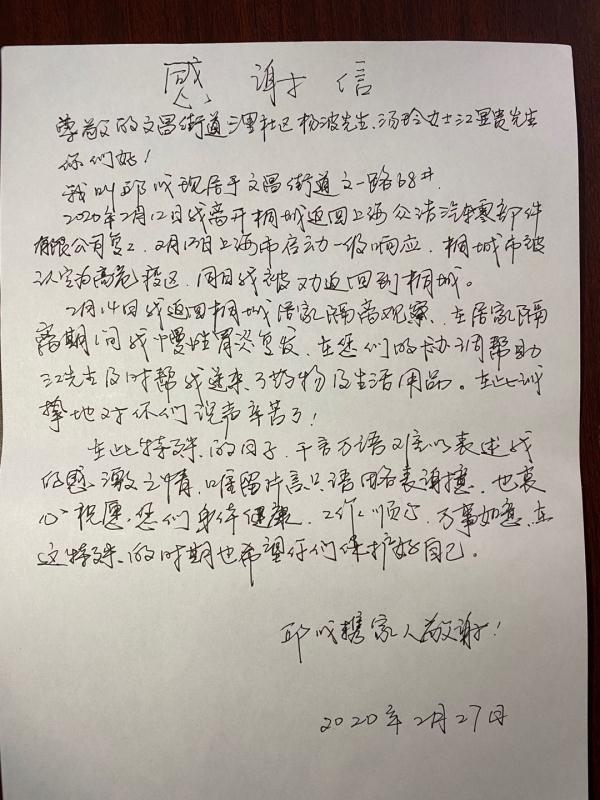 感 谢 信
尊敬的文昌街道 社区杨波先生、汤玲女士江 贵先生
你们好!
我叫邱成现居于文昌街道文一路68#.
2020年2月12日我离开桐城返回上海众洁汽车零部件
有限公司复工.2月 日上海市启动一级响应.桐城市被
认定为高危疫区,同日我被劝返回到桐城。
2月14日我返回桐城居家隔离观察.在居家隔
离期间我慢性胃炎复发,在您们的协调帮助
江先生及时帮我送来了药物及生活用品。在此诚
挚地对你们说声辛苦了!
在此特殊的日子,千言万语难以表述我
的感激之情,唯留片言只语略表谢意,也衷
心祝愿您们身体健康,工作顺心,万事如意,在
这特殊的时期也希望你们保护好自己。
邱成携家人敬谢!
2020年2月27日